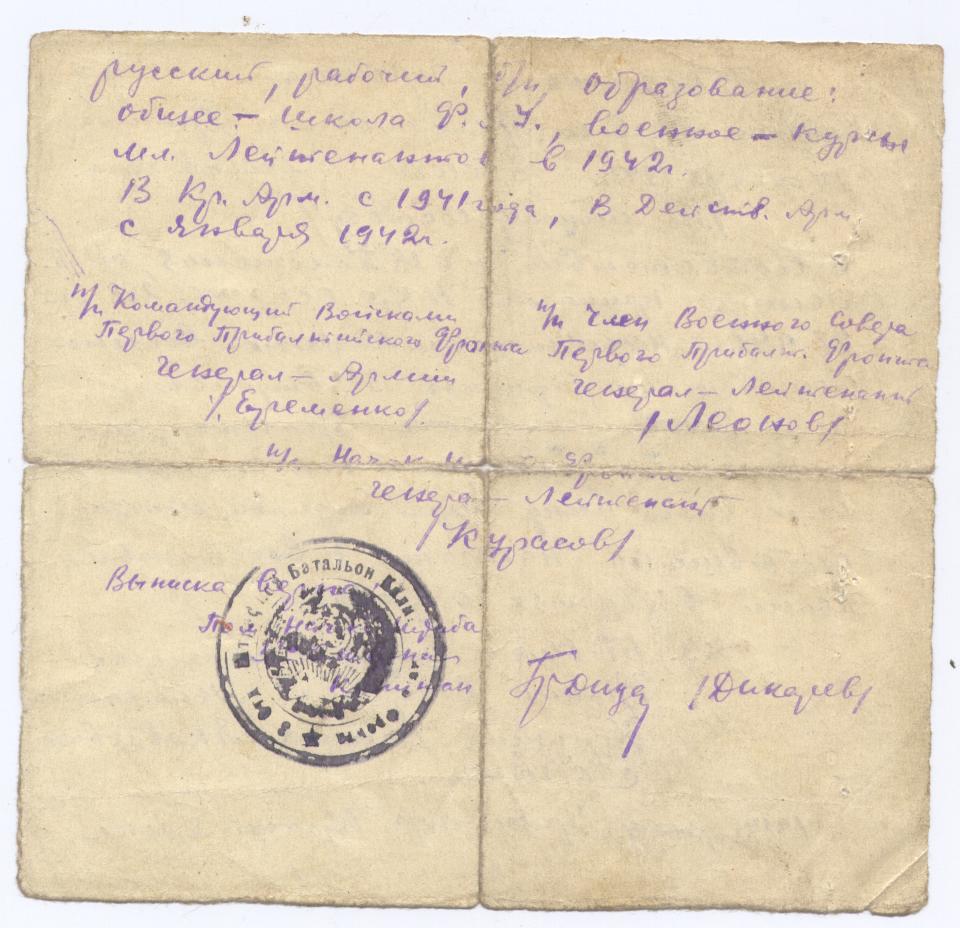 русский, рабочий, б/п, образование:
общее – школа Ф.З.У., военное – курсы
мл. Лейтенантов в 1942г.
В Кр. Арм. с 1941 года, в Действ. Арм.
с января 1942г.
п/п Командующий Войсками
Первого Прибалтийского Фронта
генерал – Армии
/Еременко/
п/п Член Военного Совета
Первого Прибалт. Фронта
генерал – Лейтенант
/Леонов/
п/п Фронта
генерал – Лейтенант
/Курасов/
Выписка верна:
Пом. Нач. Штаба
Капитан
/Дикарев/
Штрафной Батальон Фронта ★ 3 Отд